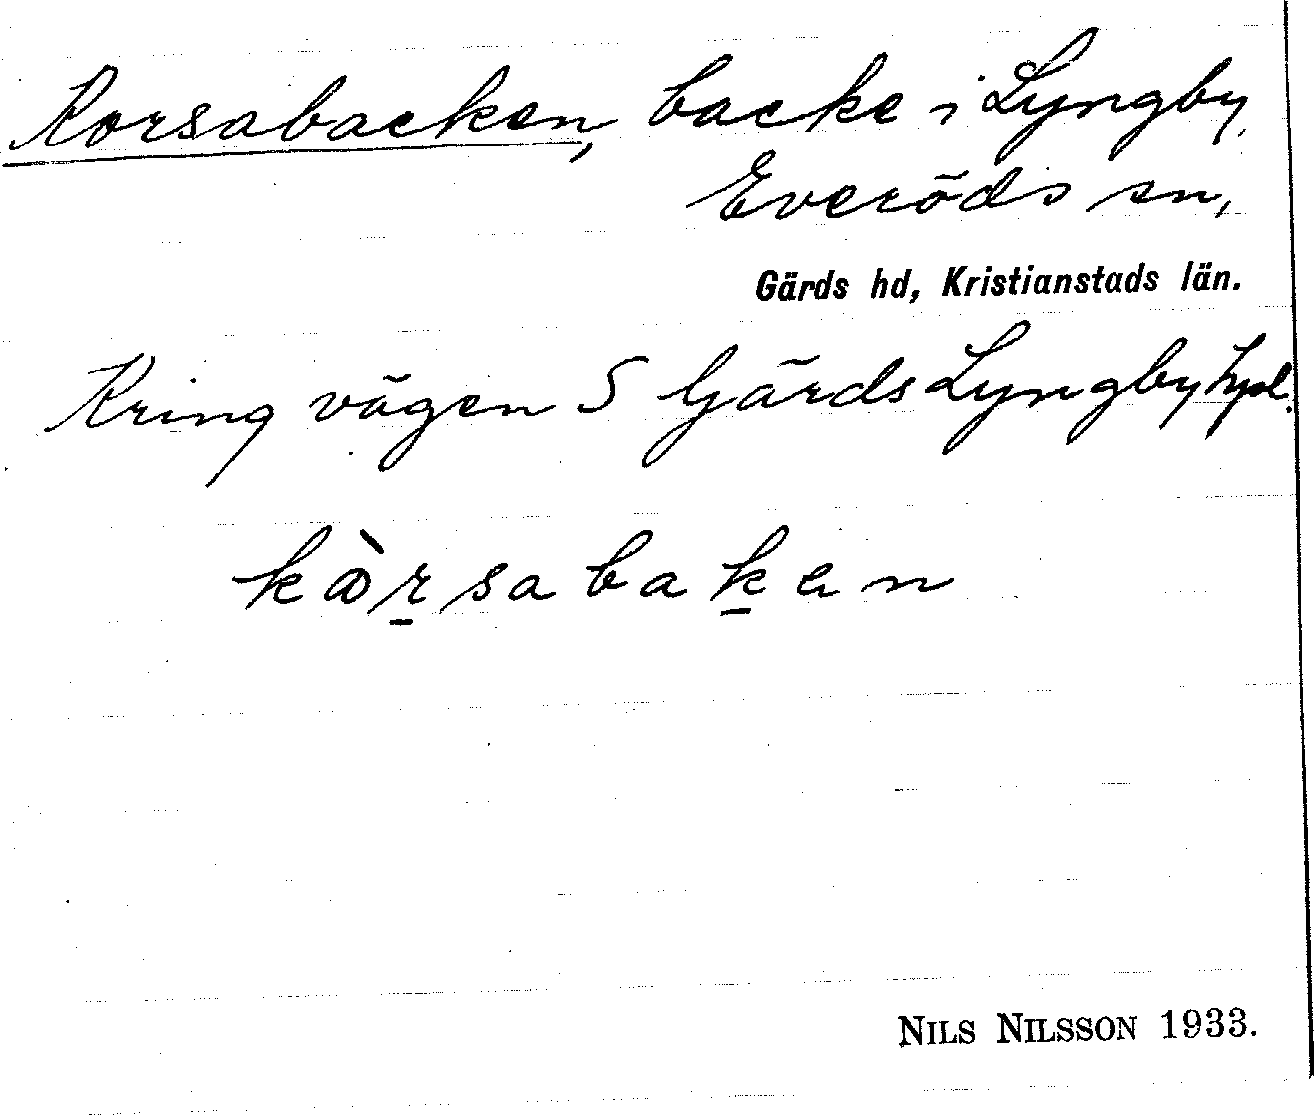 Korsabacken, backe i Lyngby,
Everöds sn,
Gärds hd, Kristianstads län.
Kring vägen S Gärds Lyngby hpl.
kòrsabaken
NILS NILSSON 1933.